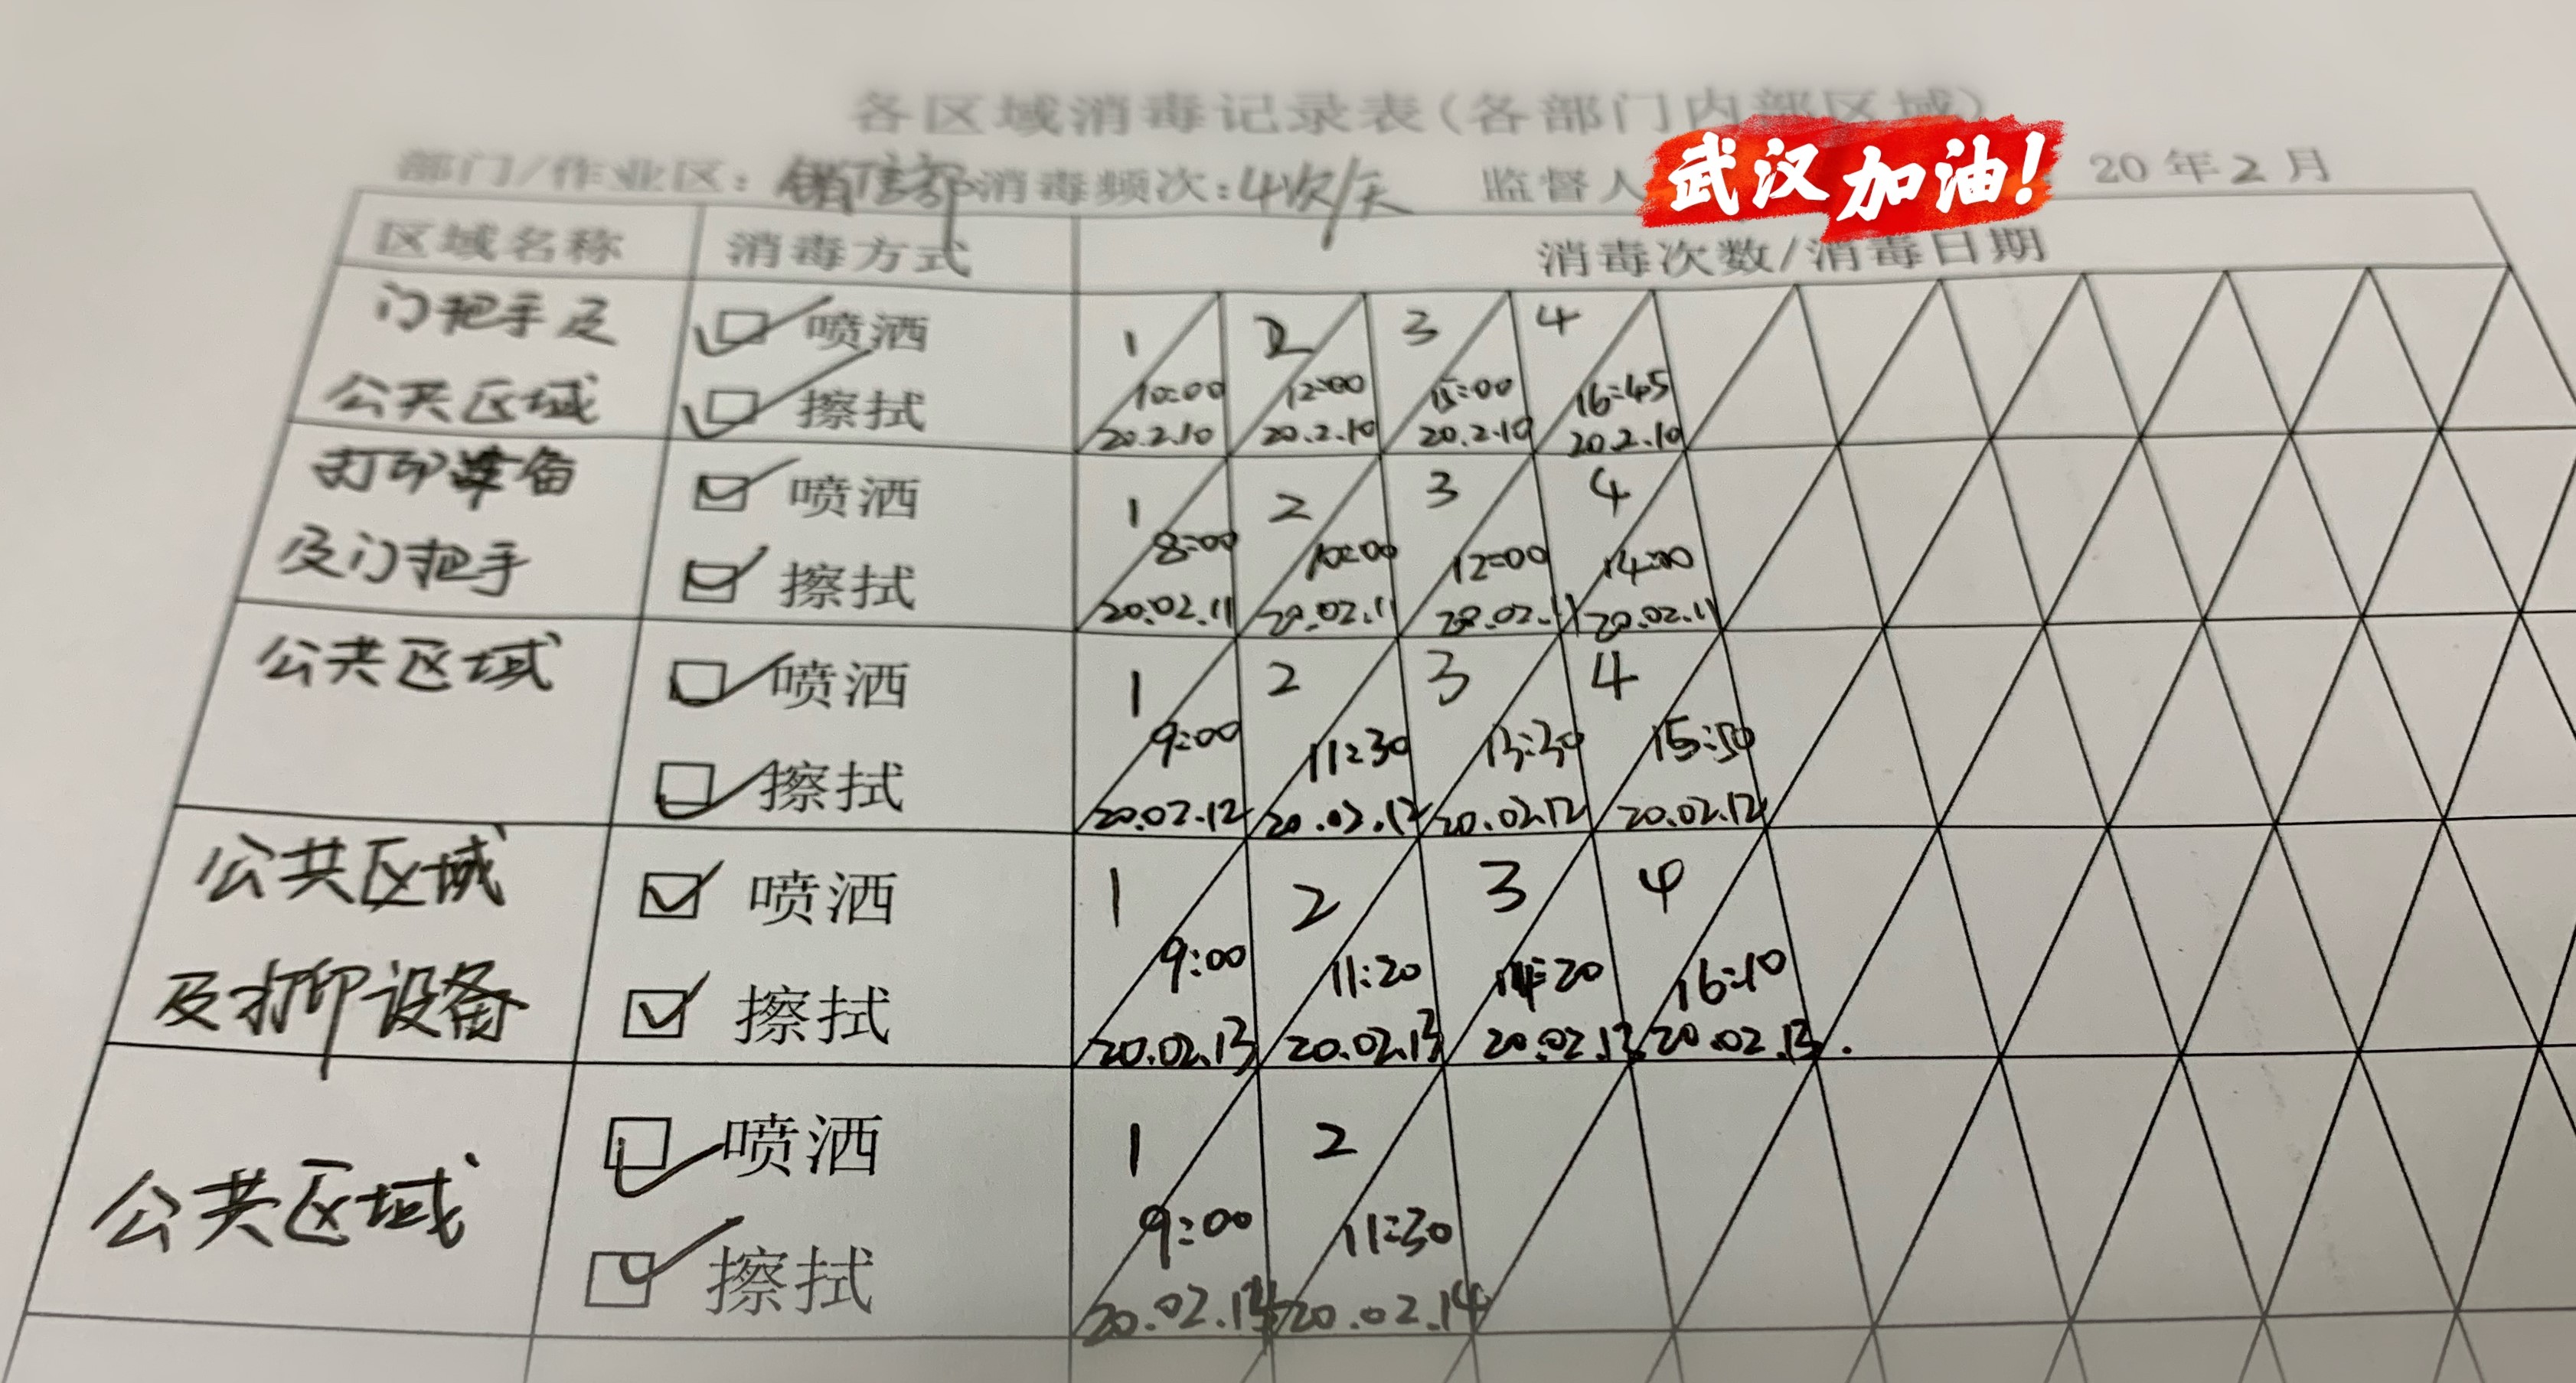 各区域消毒记录表(各部门内部区域)
部门/作业区: 销售部 消毒频次: 4次/天 监督人 20年2月
武汉加油!
区域名称 消毒方式 消毒次数/消毒日期
门把手及 喷洒 1 2 3 4
公共区域 擦拭 10:00 12:00 15:00 16:45
20.2.10 20.2.10 20.2.10 20.2.10
打印 备 喷洒 1 2 3 4
及门把手 擦拭 8:00 10:00 12:00 14:00
20.02.11 20.02.11 20.02.11 20.02.11
公共区域 喷洒 1 2 3 4
9:00 11:30 13:30 15:50
擦拭
20.02.12 20.02.12 20.02.12 20.02.12
公共区域 喷洒 1 2 3 4
9:00 11:20 14:20 16:10
及打印设备 擦拭
20.02.13 20.02.13 20.02.13 20.02.13.
喷洒 1 2
公共区域 9:00 11:30
擦拭
20.02.14 20.02.14